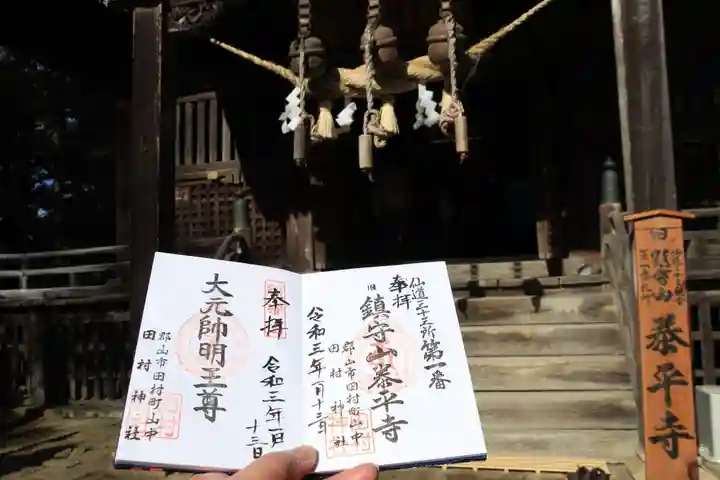 仙道三十三所第一番
奉拝
旧鎮守山泰平寺
郡山市田村町山中
田村神社
令和三年一月十三日
奉拝
令和三年一月
十三日
大元帥明王尊
郡山市田村町山中
田村神社
旧
鎮守山
泰平寺